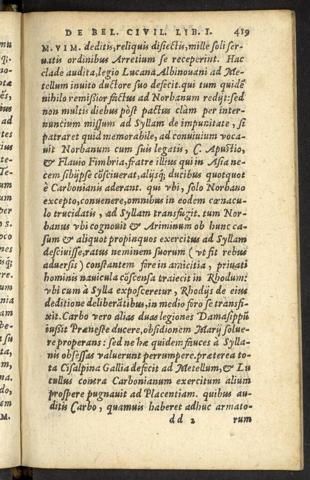 DE BEL. CIVIL. LIB. I. 419
M. VIM. deditis, reliquis disiectis, mille soli ser-
uatis ordinibus Arretium se receperint. Hac
clade audita, legio Lucana Albinouani ad Me-
tellum inuito ductore suo defecit. qui tum quidẽ
nihilo remissior factus ad Norbanum redijt: sed
non multis diebus pòst pactus clàm per inter-
nuncium missum ad Syllam de impunitate, si
patraret quid memorabile, ad conuiuium voca-
uit Norbanum cum suis legatis, C. Apustio,
& Flauio Fimbria, fratre illius qui in Asia ne-
cem sibijpse cõsciuerat, alijsq; ducibus quotquot
è Carbonianis aderant. qui vbi, solo Norbano
excepto, conuenere, omnibus in eodem cœnacu-
lo trucidatis, ad Syllam transfugit. tum Nor-
banus vbi cognouit & Ariminum ob hunc ca-
sum & aliquot propinquos exercitus ad Syllam
desciuisse, ratus neminem suorum (vt fit rebus
aduersis) constantem fore in amicitia, priuati
hominis nauicula cõscensa traiecit in Rhodum:
vbi cum à Sylla exposceretur, Rhodijs de eius
deditione deliberãtibus, in medio foro se transfi-
xit. Carbo vero alias duas legiones Damasippũ
iussit Præneste ducere, obsidionem Marij solue-
re properans: sed ne hæ quidem fauces à Sylla-
nis obsessas valuerunt perrumpere. præterea to-
ta Cisalpina Gallia defecit ad Metellum, & Lu
cullus contra Carbonianum exercitum alium
prospere pugnauit ad Placentiam. quibus au-
ditis Carbo, quamuis haberet adhuc armato-
dd 2 rum